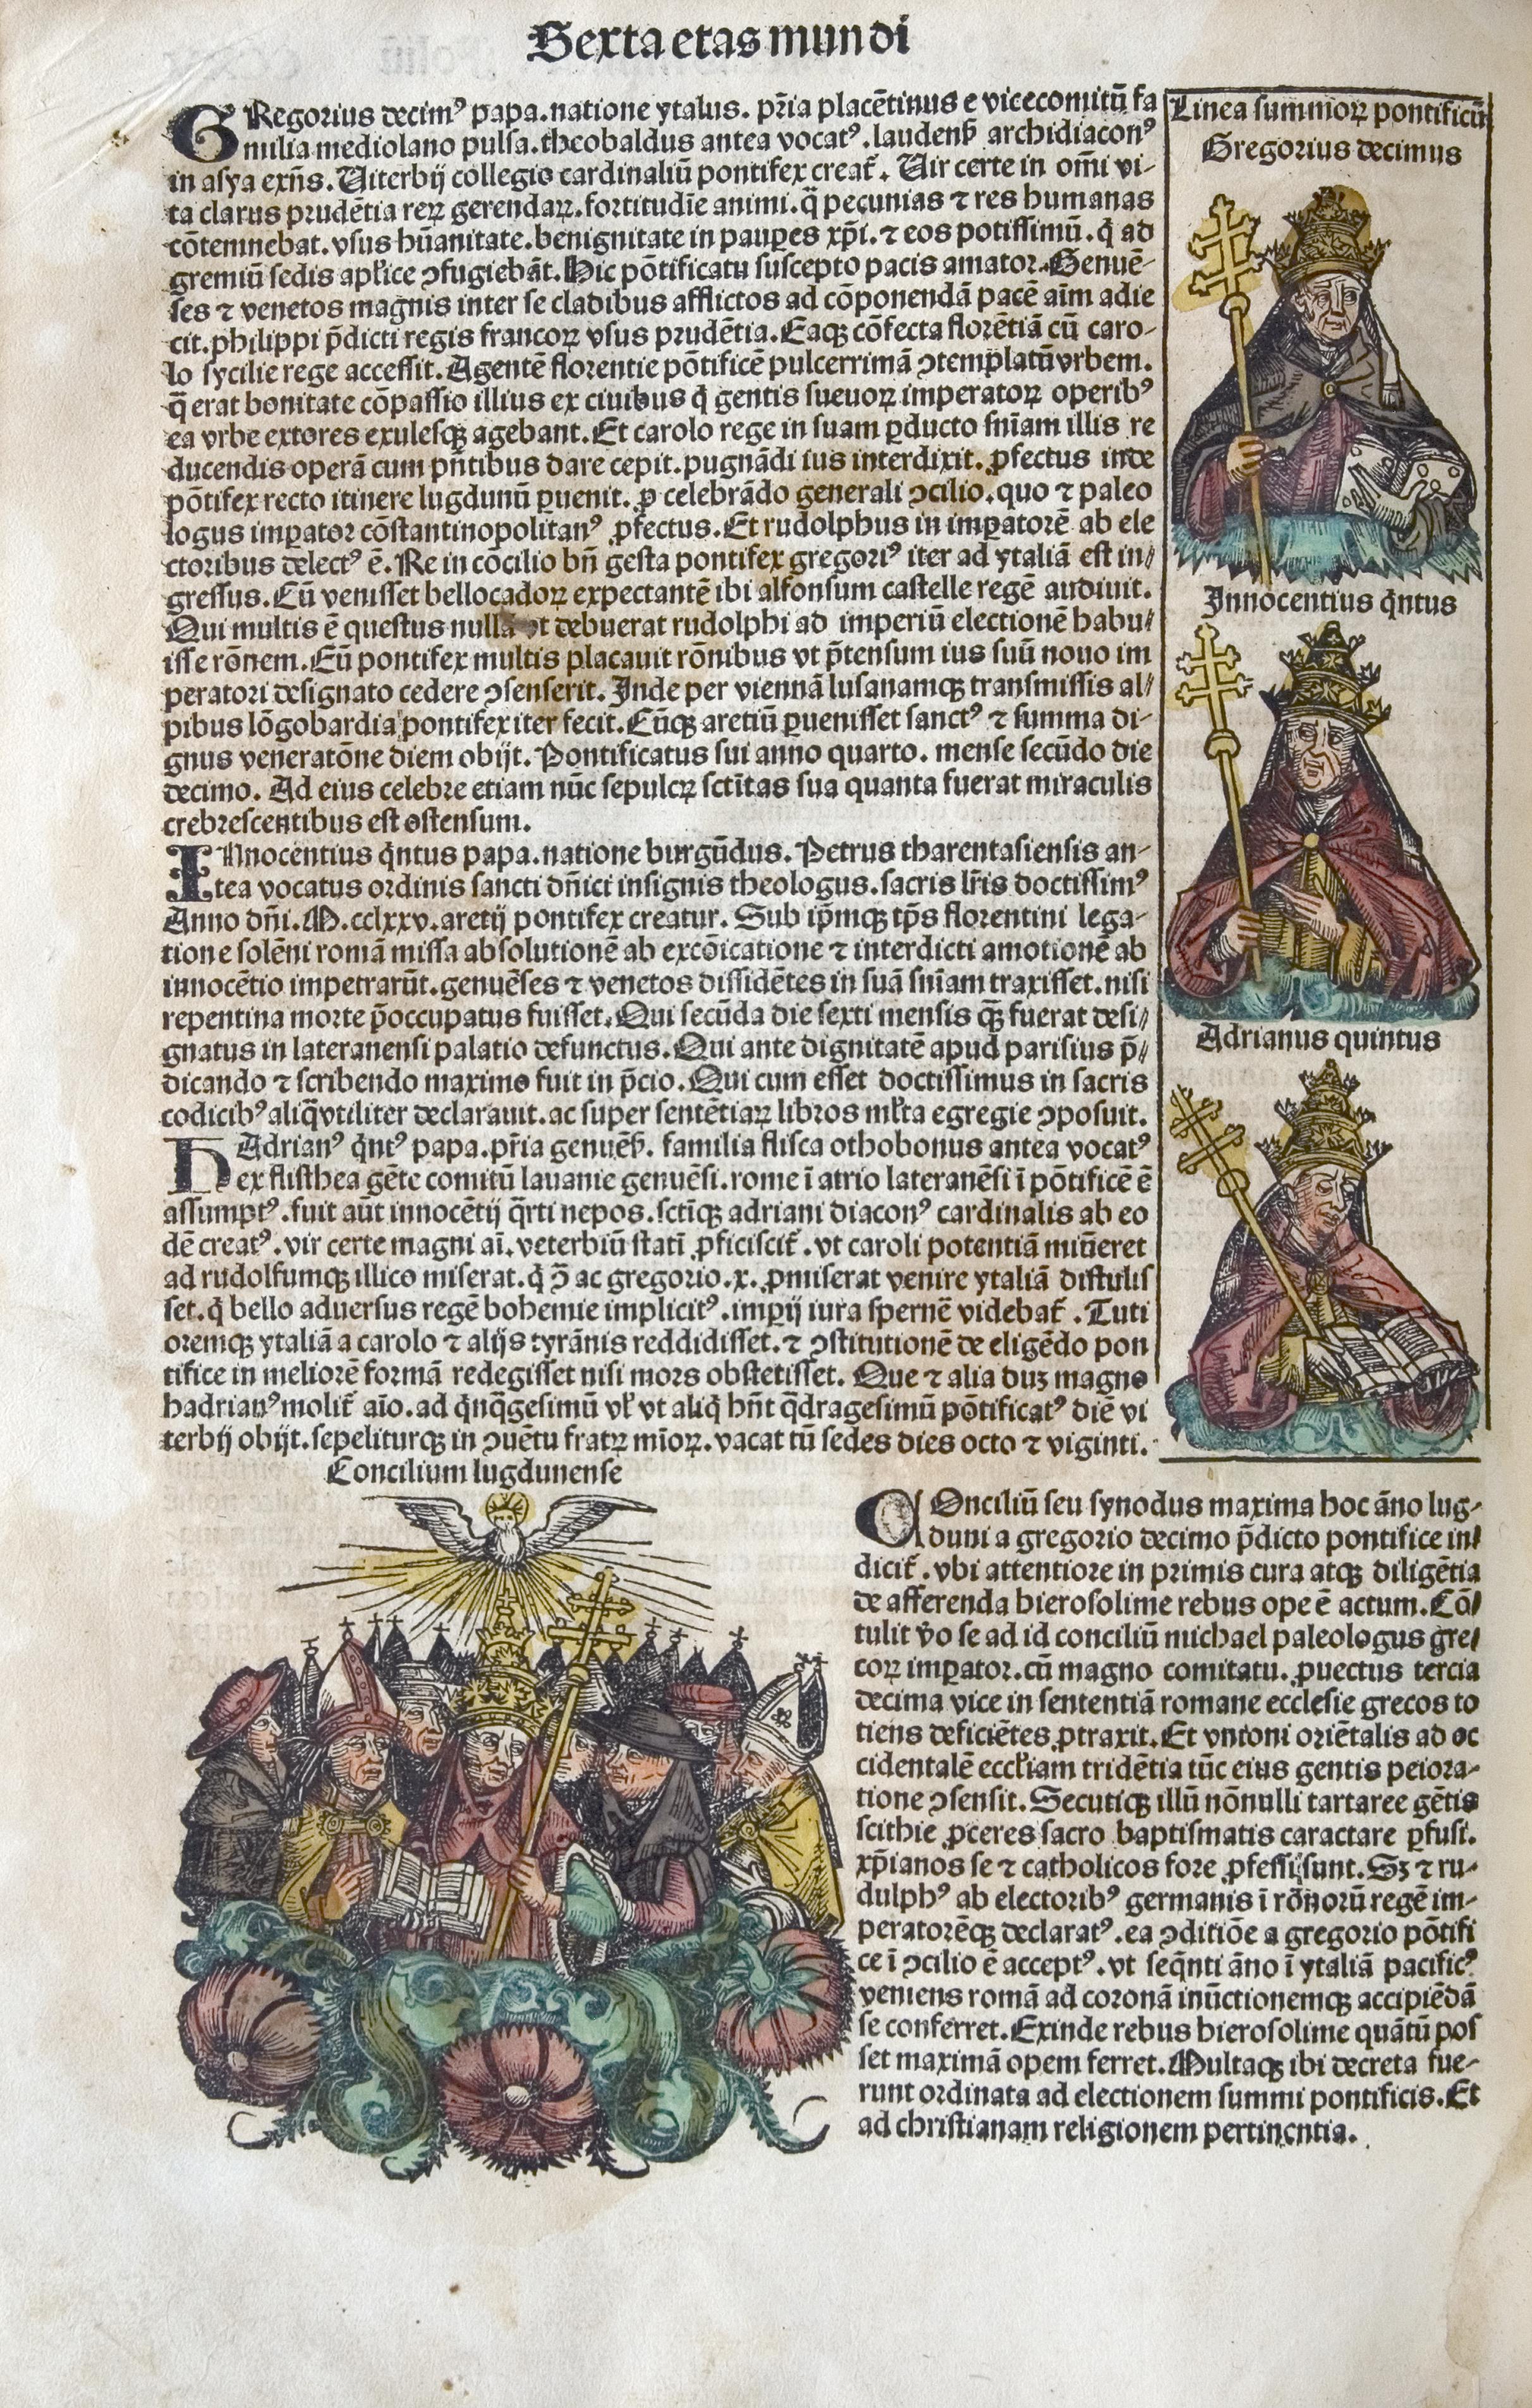 Sexta etas mundi
GRegorius decimꝰ papa.natione ytalus. pr̄ia placētinus e vicecomitū fa
milia mediolano pulsa.theobaldus antea vocatꝰ.laudenß archidiaconꝰ
in asya exn̄s. Uiterbij collegio cardinaliū pontifex creat᷑. Uir certe in om̄i vi-
ta clarus prudētia reꝝ gerendaꝝ.fortitudīe animi.q̄ pecunias ⁊ res humanas
cōtemnebat.vsus hūanitate.benignitate in pauꝑes xp̄i.⁊ eos potissimū.q̇ ad
gremiū sedis apl̓ice ꝯfugiebāt. Hic pōtificatu suscepto pacis amator. Genuē-
ses ⁊ venetos magnis inter se cladibus afflictos ad cōponendā pacē aīm adie
cit.philippi p̄dicti regis francoꝝ vsus prudētia. Eaqꝫ cōfecta florētiā cū caro-
lo sycilie rege accessit. Agentē florentie pōtificē pulcerrimā ꝯtemplatū vrbem.
q̄ erat bonitate cōpassio illius ex ciuibus q̇ gentis sueuoꝝ imperatoꝝ operibꝰ
ea vrbe extores exulesqꝫ agebant. Et carolo rege in suam ꝑducto sn̄iam illis re
ducendis operā cum pn̄tibus dare cepit. pugnādi ius interdixit. ꝓfectus inde
pōtifex recto itinere lugdunū ꝑuenit. ꝓ celebrādo generali ꝯcilio. quo ⁊ paleo
logus imꝑator cōstantinopolitanꝰ ꝓfectus. Et rudolphus in imꝑatorē ab ele
ctoribus delectꝰ ē. Re in cōcilio bn̄ gesta pontifex gregoriꝰ iter ad ytaliā est in⸗
gressus. Cū venisset bellocadoꝝ expectantē ibi alfonsum castelle regē audiuit.
Qui multis ē questus nullā vt debuerat rudolphi ad imperiū electionē habu⸗
isse rōnem. Eū pontifex multis placauit rōnibus vt p̄tensum ius suū nouo im
peratori designato cedere ꝯsenserit. Inde per viennā lusanamqꝫ transmissis al⸗
pibus lōgobardia pontifex iter fecit. Cūqꝫ aretiū ꝑuenisset sanctꝰ ⁊ summa di-
gnus veneratōne diem obijt. Pontificatus sui anno quarto. mense secūdo die
decimo. Ad eius celebre etiam nūc sepulcꝝ sctītas sua quanta fuerat miraculis
crebrescentibus est ostensum.
INnocentius q̇ntus papa.natione burgūdus. Petrus tharentasiensis an-
tea vocatus ordinis sancti dn̄ici insignis theologus.sacris lr̄is doctissimꝰ
Anno dn̄i. M.cclxxv.aretij pontifex creatur. Sub ip̄mqꝫ tp̄s florentini lega-
tione solēni romā missa absolutionē ab excōicatione ⁊ interdicti amotionē ab
innocētio impetrarūt.genuēses ⁊ venetos dissidētes in suā sn̄iam traxisset.nisi
repentina morte p̄occupatus fuisset. Qui secūda die sexti mensis qꝫ fuerat desi⸗
gnatus in lateranensi palatio defunctus. Qui ante dignitatē apud parisius p̄⸗
dicando ⁊ scribendo maximo fuit in p̄cio. Qui cum esset doctissimus in sacris
codicibꝰ aliq̄ vtiliter declarauit. ac super sentētiaꝝ libros ml̓ta egregie ꝯposuit.
HAdrianꝰ q̇ntꝰ papa.pr̄ia genuēß. familia flisca othobonus antea vocatꝰ
ex flisthea gēte comitū lauanie genuēsi.rome ī atrio lateranēsi ī pōtificē ē
assumptꝰ.fuit aūt innocētij q̄rti nepos.sctīqꝫ adriani diaconꝰ cardinalis ab eo
dē creatꝰ.vir certe magni aī.veterbiū statī ꝓficiscit᷑. vt caroli potentiā minēret
ad rudolfumqꝫ illico miserat.q̇ ꝫ̄ ac gregorio.x. ꝓmiserat venire ytaliā distulis
set.q̇ bello aduersus regē bohemie implicitꝰ.imꝑij iura spernē videbat᷑. Tuti
oremqꝫ ytaliā a carolo ⁊ alijs tyrānis reddidisset.⁊ ꝯstitutionē de eligēdo pon
tifice in meliorē formā redegisset nisi mors obstetisset. Que ⁊ alia duꝫ magno
hadrianꝰ molit᷑ aīo.ad q̇nq̄gesimū vl̓ vt aliq̇ hn̄t q̄dragesimū pōtificatꝰ diē vi
terbij obijt.sepeliturqꝫ in ꝯuētu fratꝝ mīoꝝ.vacat tū sedes dies octo ⁊ viginti.
Linea summoꝝ pontificū
Gregorius decimus
Innocentius q̇ntus
Adrianus quintus
Concilium lugdunense
COnciliū seu synodus maxima hoc āno lug-
duni a gregorio decimo p̄dicto pontifice in⸗
dicit᷑. vbi attentiore in primis cura atqꝫ diligētia
de afferenda hierosolime rebus ope ē actum. Cō⸗
tulit v̄o se ad id conciliū michael paleologus gre⸗
coꝝ imꝑator.cū magno comitatu. ꝓuectus tercia
decima vice in sententiā romane ecclesie grecos to
tiens deficiētes ꝓtraxit. Et vnioni oriētalis ad oc
cidentalē eccl̓iam tridētia tūc eius gentis peiora-
tione ꝯsensit. Secutiqꝫ illū nōnulli tartaree gētis
scithie ꝓceres sacro baptismatis caractare ꝑfusi.
xp̄ianos se ⁊ catholicos fore ꝓfessi sunt. Sꝫ ⁊ ru-
dulphꝰ ab electoribꝰ germanis ī rōnorū regē im-
peratorēqꝫ declaratꝰ.ea ꝯditiōe a gregorio pōtifi
ce ī ꝯcilio ē acceptꝰ.vt seq̄nti āno ī ytaliā pacificꝰ
veniens romā ad coronā inūctionemqꝫ accipiēdā
se conferret. Exinde rebus hierosolime quātū pos
set maximā opem ferret. Multaqꝫ ibi decreta fue-
runt ordinata ad electionem summi pontificis. Et
ad christianam religionem pertinentia.